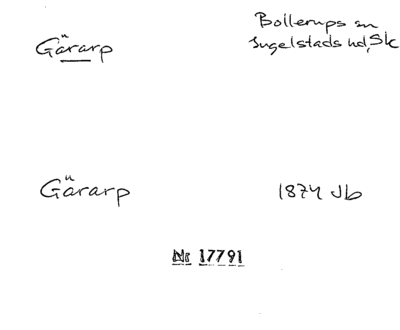 Gärarp
Bollerups sn
Ingelstads hd, Sk
Gärarp
1874 Jb
Nr 17791